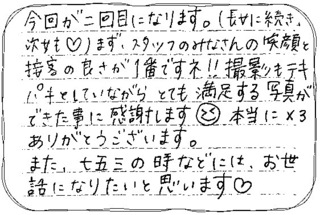 今回が二回目になります。(長女に続き、
次女も♡)まず、スタッフのみなさんの笑顔と
接客の良さが1番ですネ!!撮影もテキ
パキとしていながら とても満足する写真が
できた事に感謝します☺ 本当に×3
ありがとうございます。
また、七五三の時などには、お世
話になりたいと思います♡